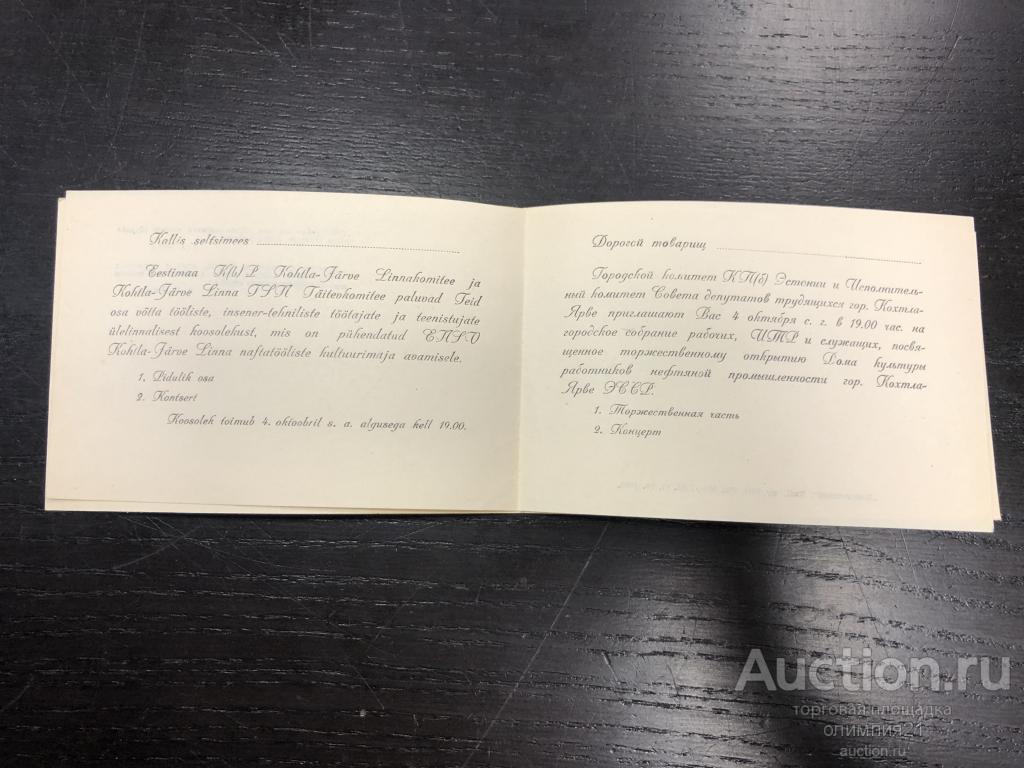 Kallis seltsimees
Eestimaa K(b)P Kohtla-Järve Linnakomitee ja
Kohtla-Järve Linna TSN Täitevkomitee paluvad Teid
osa võtta tööliste, insener-tehniliste töötajate ja teenistujate
ülelinnalisest koosolekust, mis on pühendatud ENSV
Kohtla-Järve Linna naftatööliste kultuurimaja avamisele.
1. Pidulik osa
2. Kontsert
Koosolek toimub 4. oktoobril s. a. algusega kell 19.00.
Дорогой товарищ
Городской комитет КП(б) Эстонии и Исполнитель-
ный комитет Совета депутатов трудящихся гор. Кохтла-
Ярве приглашают Вас 4 октября с. г. в 19.00 час. на
городское собрание рабочих, ИТР и служащих, посвя-
щенное торжественному открытию Дома культуры
работников нефтяной промышленности гор. Кохтла-
Ярве ЭССР.
1. Торжественная часть
2. Концерт
Auction.ru
торговая площадка
олимпия24
auction.ru